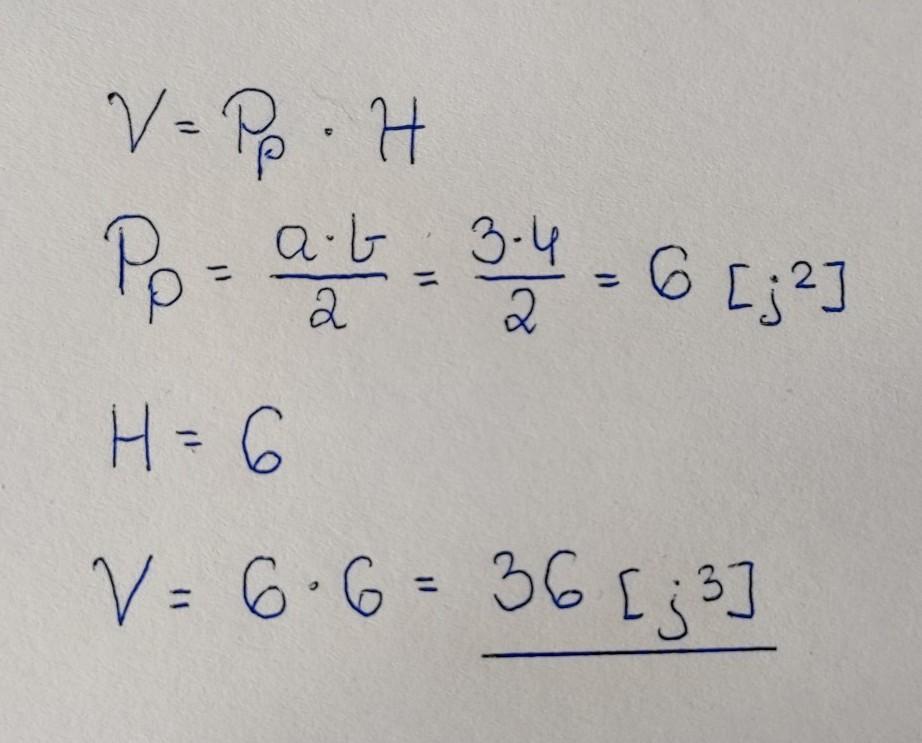 V = Pp · H
Pp = a·b/2 = 3·4/2 = 6 [j²]
H = 6
V = 6 · 6 = 36 [j³]